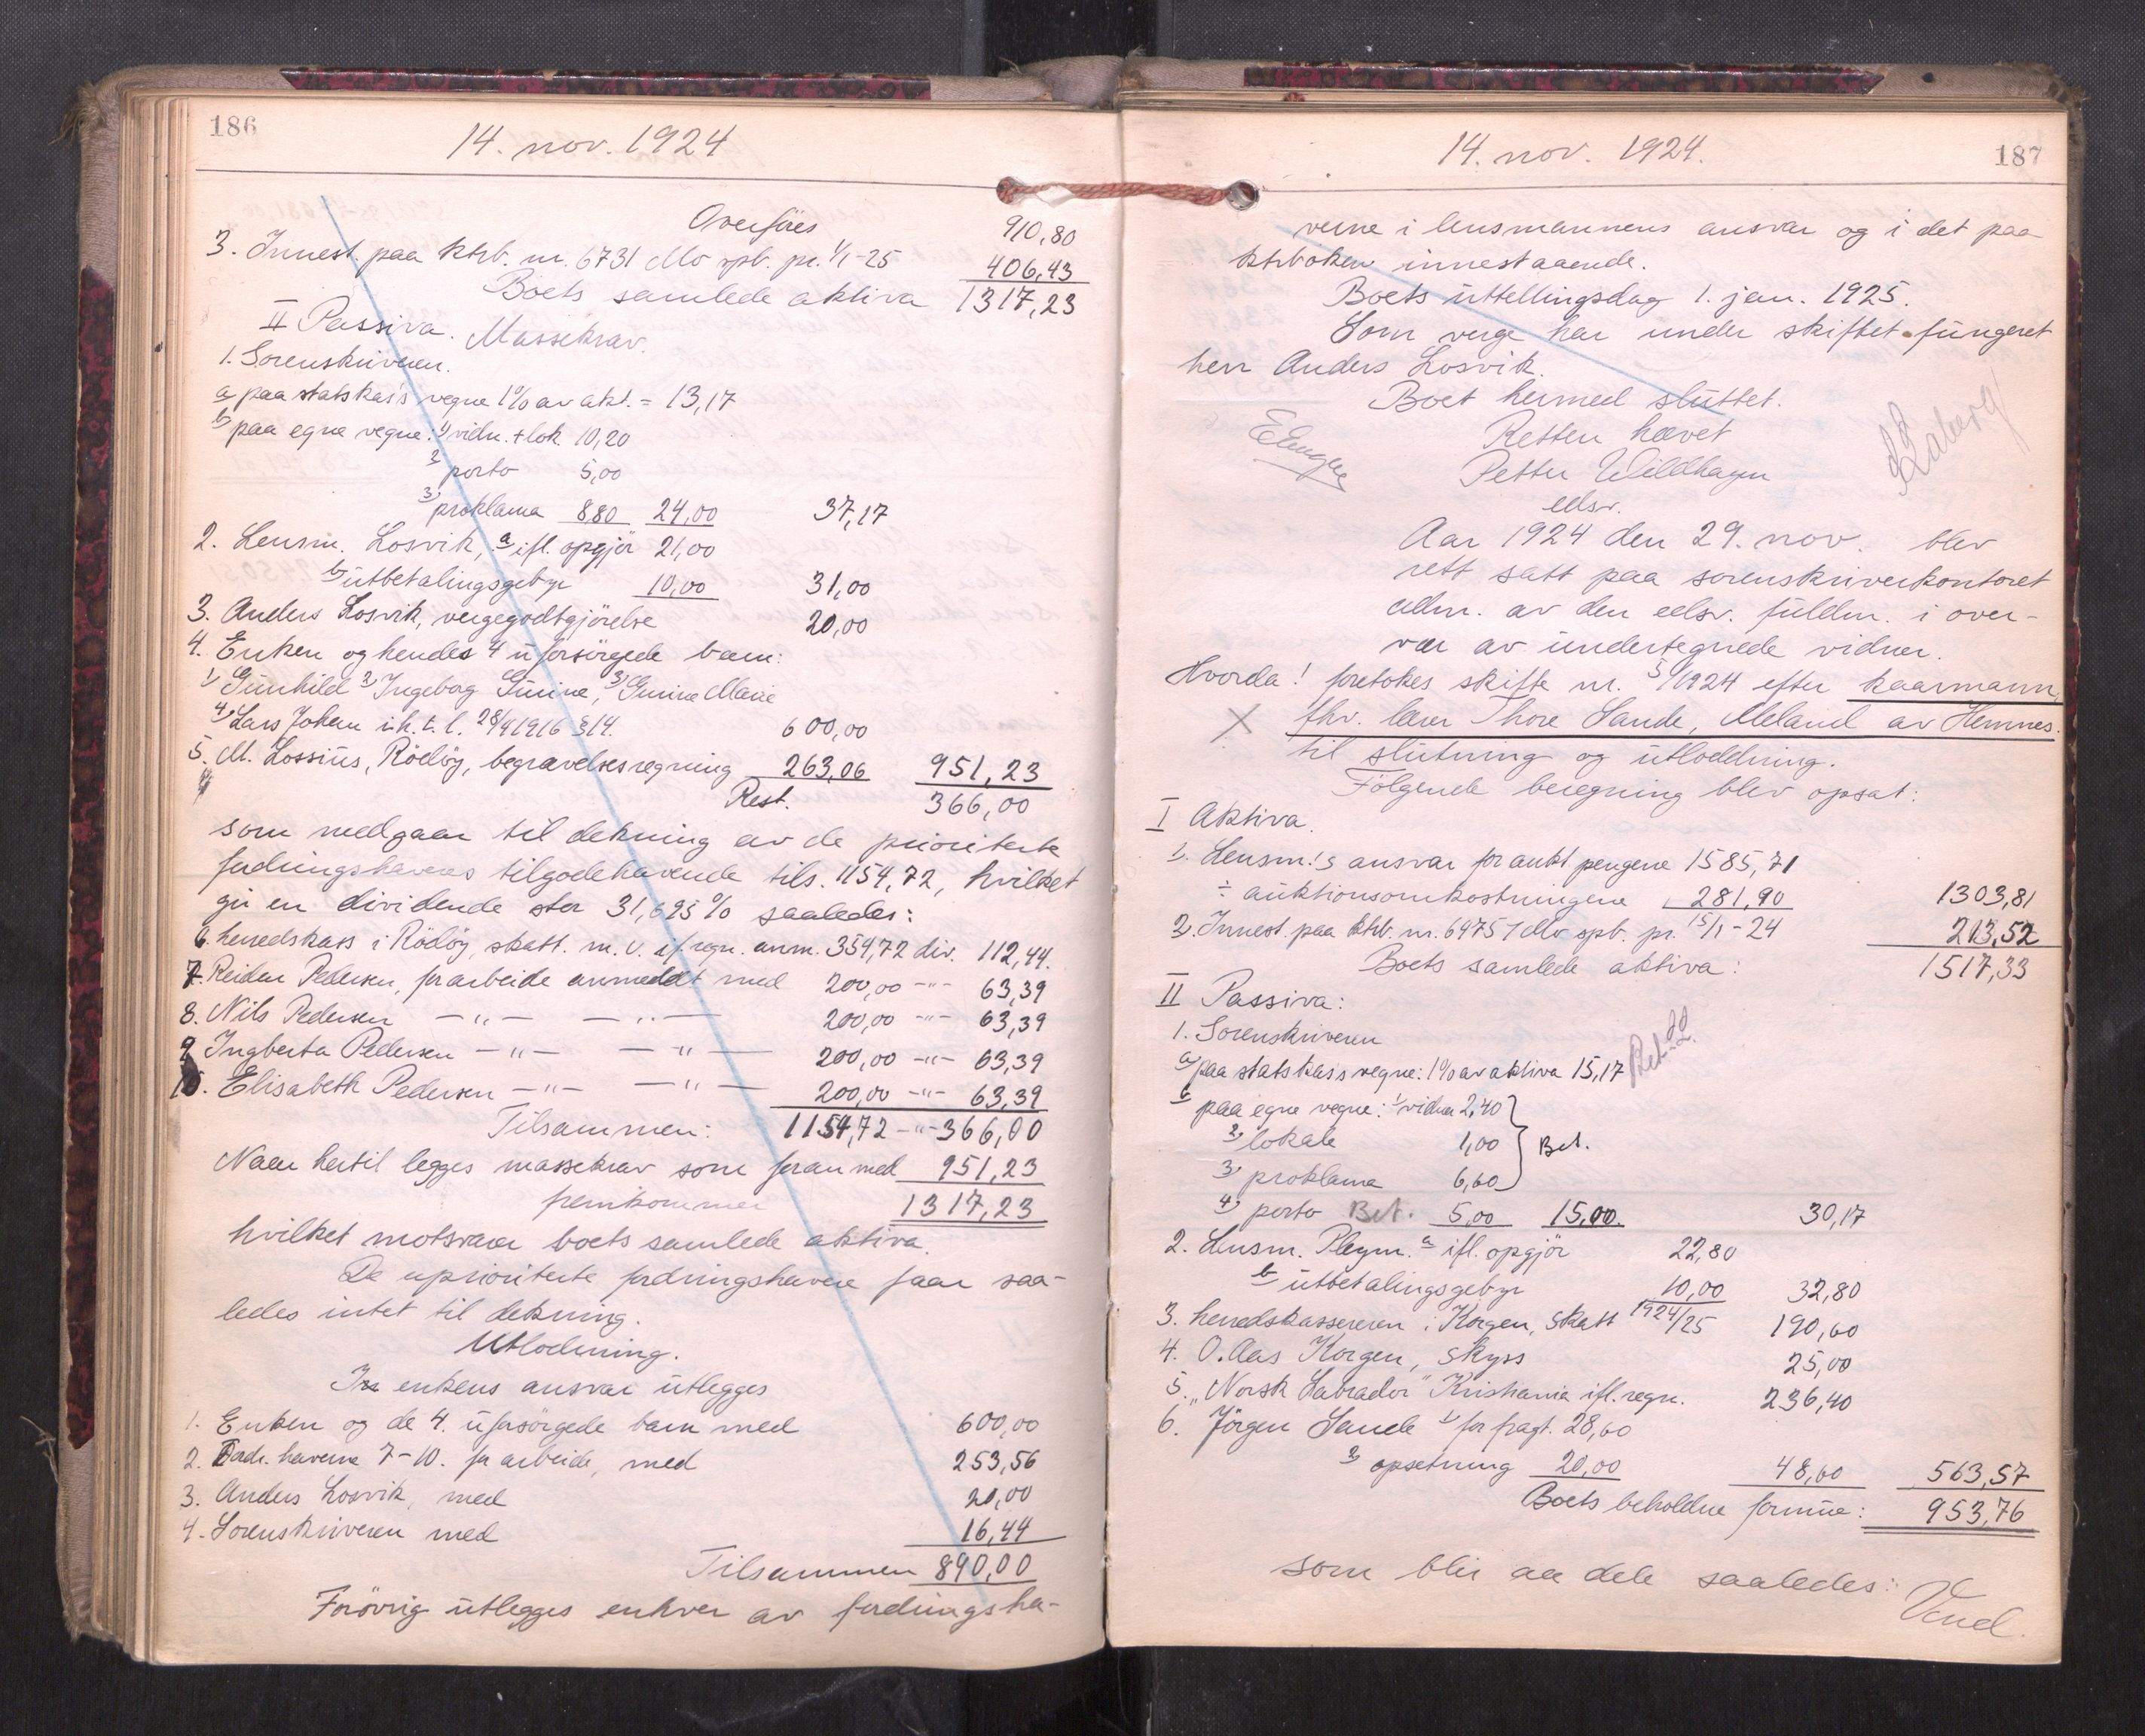 186
14. nov. 1924
Overføres 910,80
3. Innest. paa ktrb. nr. 6731 Mo spb. pr. 1/1-25 406,43
Boets samlede aktiva 1317,23
II Passiva. Massekrav.
1. Sorenskriveren.
a paa statskas's vegne 1% av akt. = 13,17
b paa egne vegne: 1) vidn. + lok. 10,20
2 porto 5,00
3) proklama 880 24,00 37,17
2. Lensm. Losvik, a ifl. opgjør 21,00
b utbetalingsgebyr 10,00 31,00
3. Anders Losvik, vergegodtgjørelse 20,00
4. Enken og hendes 4 uforsørgede barn:
1) Gunhild 2) Ingeborg Gurine, 3) Gurine Marie
4) Lars Johan i.h.t. l. 28/4 1916 §14. 600,00
5. M. Lossius, Rödöy, begravelsesregning 263,06 951,23
Rest. 366,00
som medgaar til dekning av de prioriterte
fordringshaveres tilgodehavende tils. 1154,72, hvilket
gir en dividende stor 31,695% saaledes:
6. herredskass i Rödöy, skatt. m. v. if. regn. anm. 354,72 div. 112,44.
7. Reidar Pedersen, for arbeide anmeldt med 200,00 -"- 63,39
8. Nils Pedersen -"- -"- 200,00 -"- 63,39
9 Ingberta Pedersen -"- -"- 200,00 -"- 63,39
10. Elisabeth Pedersen -"- -"- 200,00 -"- 63,39
Tilsammen: 1154,72 -"- 366,00
Naar hertil legges massekrav som foran med 951,23
fremkommer 1317,23
hvilket motsvarer boets samlede aktiva.
De uprioriterte fordringshavere faar saa-
ledes intet til dekning.
Utlodning.
I enkens ansvar utlegges
1. Enken og de 4. uforsørgede barn med 600,00
2. Fordr. haverne 7-10. for arbeide, med 253,56
3. Anders Losvik, med 20,00
4. Sorenskriveren med 16,44
Tilsammen 890,00
Forøvrig utlegges enhver av fordringsha-
14. nov. 1924.
187
verne i lensmannens ansvar og i det paa
ktrboken innestaaende.
Boets uttellingsdag 1. jan. 1925.
Som verge har under skiftet fungeret
herr Anders Losvik.
Boet hermed sluttet.
Retten hævet
Petter Wildhagen
edsv.
Aar 1924 den 29. nov. blev
rett satt paa sorenskriverkontoret
adm. av den edsv. fuldm. i over-
vær av undertegnede vidner.
Hvorda! foretokes skifte nr. 5/1924 efter kaarmann,
X fhv. lærer Thore Sande, Meland av Hemnes.
til slutning og utlodning.
Følgende beregning blev opsat:
I Aktiva.
1. Lensm!s ansvar for aukt pengene 1585,71
÷ auktionsomkostningene 281,90 1303,81
2. Innest. paa ktrb. nr. 6975 i Mo spb. pr. 15/1-24 213,52
Boets samlede aktiva: 1517,33
II Passiva:
1. Sorenskriveren
a) paa statskas's vegne: 1% av aktiva 15,17
b paa egne vegne: 1) vidner 2,40
2) lokale 1,00 Bet.
3) proklama 6,60
4) porto Bet. 5,00 15,00. 30,17
2. Lensm. Pleym. a ifl. opgjör 22,80
b utbetalingsgebyr 10,00 32,80
3. herredskassereren i Korgen, skatt 1924/25 190,60
4. O. Aas Korgen, skyss 25,00
5. "Norsk Labrador" Kristiania ifl. regn. 236,40
6. Jörgen Sande 1) for fragt. 28,60
2) opsetning 20,00 48,60 563,57
Boets beholdne formue: 953,76
som blir aa dele saaledes:
Vend.